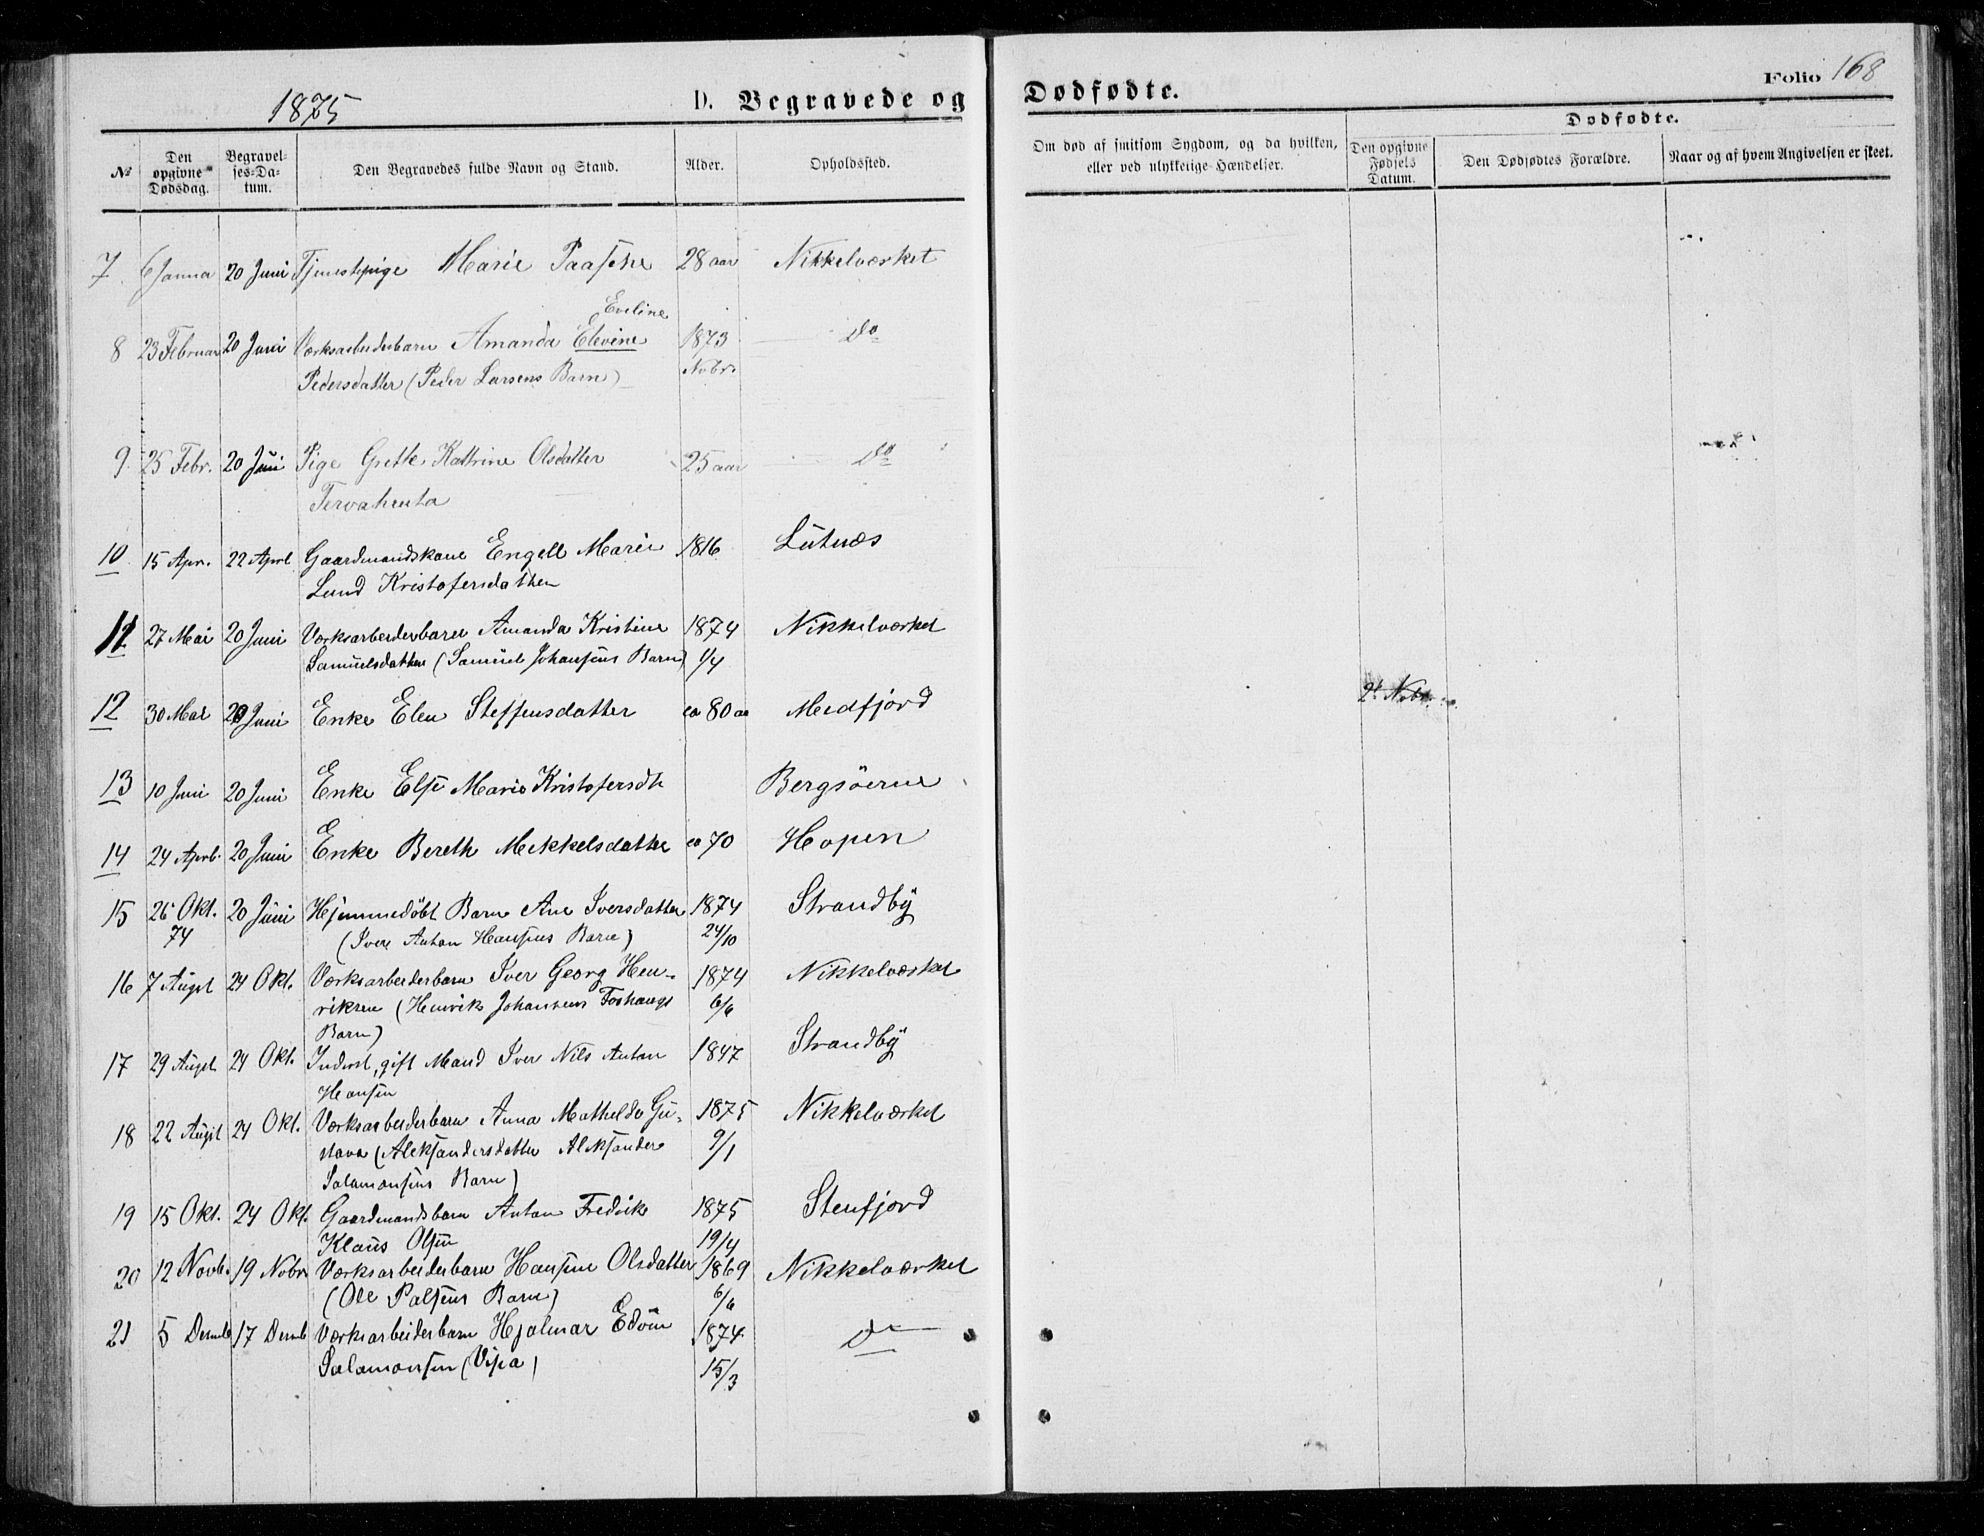 1875
D. Begravede og
Dødfødte.
Folio 168
№
Den opgivne Dødsdag.
Begravelses-Datum.
Den Begravedes fulde Navn og Stand.
Alder.
Opholdssted.
Om død af smitsom Sygdom, og da hvilken, eller ved ulykkelige Hændelser.
Dødfødte.
Den opgivne Fødsels Datum.
Den Dødfødtes Forældre.
Naar og af hvem Angivelsen er skeet.
7 6 Janua 20 Juni Tjenestepige Marie Paasche 28 aar Nikkelværket
Eveline
8 23 Februar 20 Juni Værksarbeiderbarn Amanda Elevine 1873 Do
Pedersdatter (Peder Larsens Barn) Nobr.
9 25 Febr. 20 Juni Pige Grethe Kathrine Olsdatter 25 aar Do
Tervahuta
10 15 Apr. 22 April Gaardmandskone Engell Marie 1816 Lutnæs
Lund Kristofersdatter
11 27 Mai 20 Juni Værksarbeiderbarn Amanda Kristine 1874 Nikkelværket
Samuelsdatter (Samuel Johansens Barn) 1/4
12 30 Mai 20 Juni Enke Elen Steffensdatter ca 80 aa Medfjord
13 10 Juni 20 Juni Enke Else Marie Kristofersdtr Bergsöerne
14 24 Aprl. 20 Juni Enke Bereth Mekkelsdatter ca 70 Hopen
15 26 Okt. 20 Juni Hjemmedöbt Barn Ane Iversdatter 1874 Strandby
74 (Iver Anton Hansens Barn) 24/10
16 7 Augst 24 Okt. Værksarbeiderbarn Iver Georg Hen- 1874 Nikkelværket
riksen (Henrik Johansens Foshaugs 6/6
Barn)
17 29 Augst. 24 Okt. Inderst, gift Mand Iver Nils Anton 1847 Strandby
Hansen
18 22 Augst 24 Okt. Værksarbeiderbarn Anna Mathelde Gu- 1875 Nikkelværket
stava (Aleksandersdatter Aleksander 9/1
Salamonsens Barn)
19 15 Okt. 24 Okt. Gaardmandsbarn Anton Fredrik 1875 Stenfjord
Klaus Olsen 19/4
20 12 Novb. 19 Nobr Værksarbeiderbarn Hansine Olsdatter 1869 Nikkelværket
(Ole Palsens Barn) 6/6
21 5 Desmb 17 Desmb Værksarbeiderbarn Hjalmar Edvin 1874 Do
Salamonsen (Vipa) 15/3